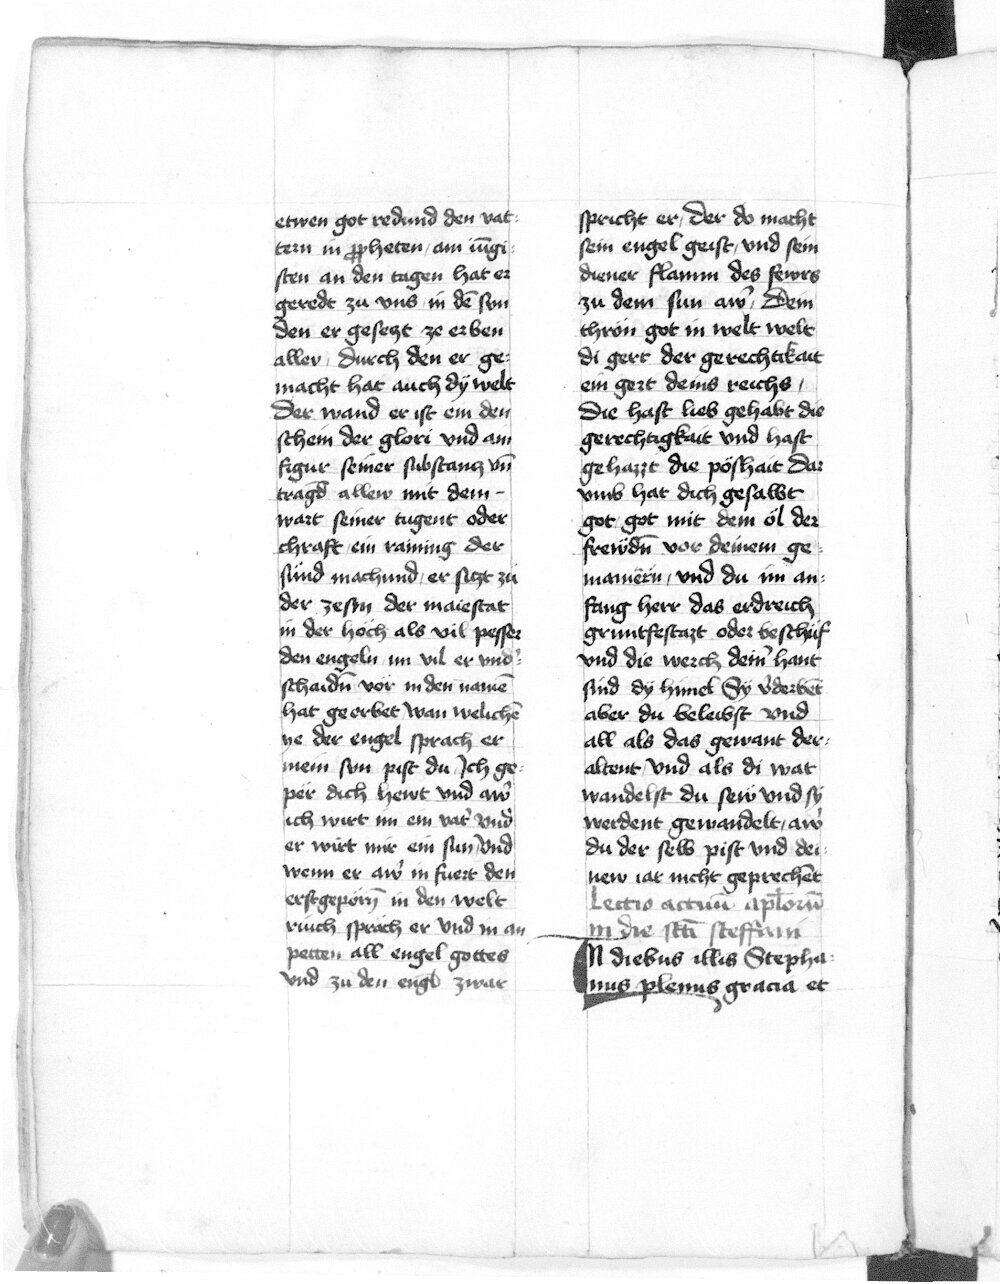 etwen got redund den vat-
tern in ꝓpheten / am iu̅gi-
sten an den tagen hat er
geredt zu vns in de̅ sun
den er gesetzt ze erben
aller / durch den er ge-
macht hat auch dÿ welt
Der wand er ist ein den
schein der glori vnd am
figur seiner substancz vn̅
tragd allew mit dem
wart seiner tugent oder
chraft ein raining der
sünd machund / er siczt zü
der zesm der maiestat
in der höch als vil pesser
den engeln im vil er vnd͛-
schaidn̄ vor in den name̅
hat georbet Wan weliche̅
ye der engel sprach er
mein sun pist du Ich ge-
per dich hewt vnd aw͛
ich wirt im ein vat͛ vnd
er wirt mir ein sun Vnd
wenn er aw͛ in fuert den
erstgepörn̄ in den welt
chraiß sprach er Vnd in an
petten all engel gottes
Vnd zu den engl zwar
spricht er / Der do macht
sein engel geist / vnd sein
diener flamm des fewrs
zu dem sun aw͛ / Dein
thron got in welt welt
di gert der gerechtikait
ein gert deins reichs /
Die hast lieb gehabt die
gerechtigkait vnd hast
gehazzt die pöshait Dar
vmb hat dich gesalbt
got / got mit dem öl der
frewdn̄ vor deinem ge-
mainern / vnd du im an-
fang herr das erdreich
gruntfestazt oder beschüf
vnd die werch dein͛ hant
sind dÿ himel Sÿ v͛derbe̅t
aber du beleibst vnd
all als das gewant der-
altent / Vnd als di wat
wandelst du sew vnd sÿ
werdent gewandelt / aw͛
du der selb pist vnd dei-
new iar nicht gepreche̅t
Lectio actuu̅ ap̅loru̅
in die sc̅ti steffani
IN diebus illis Stepha-
nus plenus gracia et